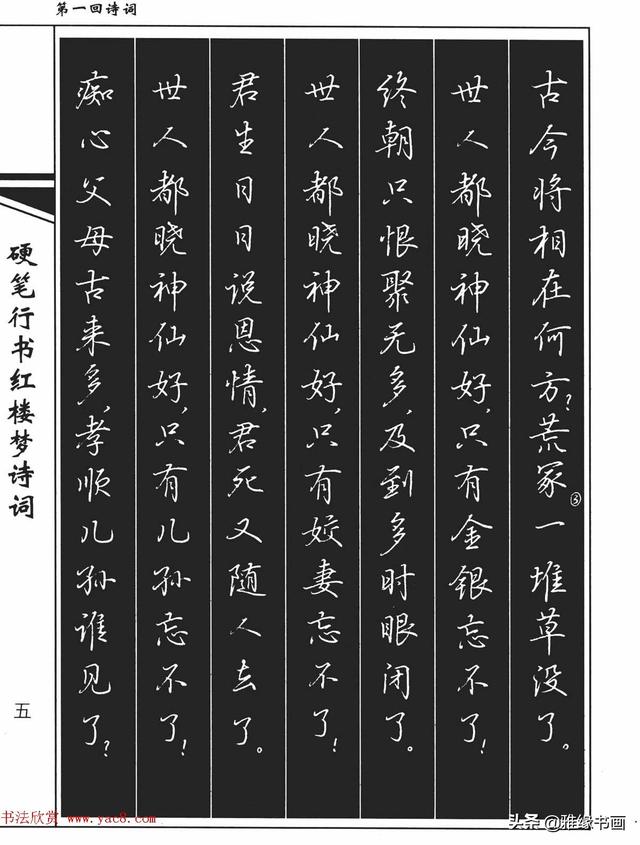 第一回诗词
古今将相在何方?荒冢③一堆草没了。
世人都晓神仙好,只有金银忘不了!
终朝只恨聚无多,及到多时眼闭了。
世人都晓神仙好,只有姣妻忘不了!
君生日日说恩情,君死又随人去了。
世人都晓神仙好,只有儿孙忘不了!
痴心父母古来多,孝顺儿孙谁见了?
硬笔行书红楼梦诗词
五
书法欣赏 www.yac8.com
头条 @雅缘书画